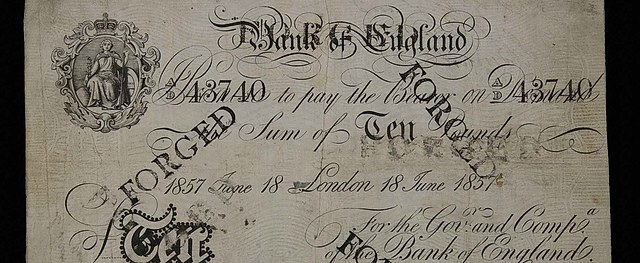 Bank of England
A/D 43740 I Promise to pay the Bearer on Demand A/D 43740
The Sum of Ten Pounds
FORGED
FORGED
FORGED
1857 June 18 London 18 June 1857
For the Gov.r and Comp.a
of the Bank of England
£ Ten